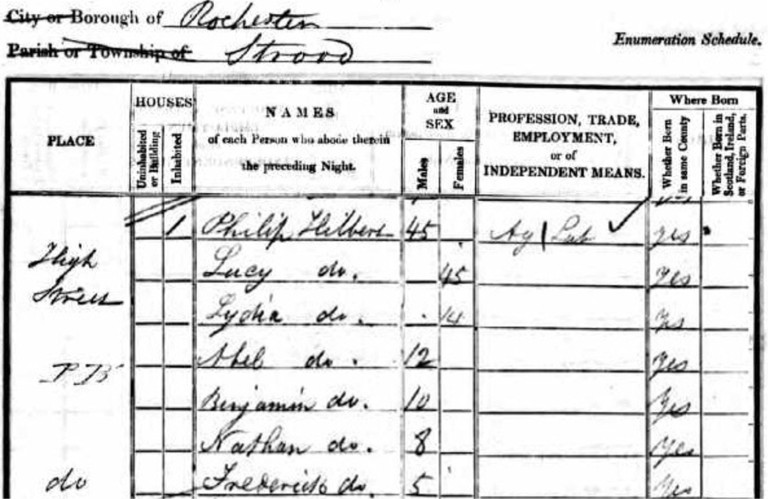 City or Borough of Rochester
Parish or Township of Strood
Enumeration Schedule.
PLACE
HOUSES
Uninhabited or Building
Inhabited
NAMES
of each Person who abode therein
the preceding Night.
AGE
and
SEX
Males
Females
PROFESSION, TRADE,
EMPLOYMENT,
or of
INDEPENDENT MEANS.
Where Born
Whether Born in same County
Whether Born in Scotland, Ireland, or Foreign Parts.
1 Philip Hilbers 45 Ag Lab yes
High Lucy do. 45 Yes
Street Lydia do. 14 Yes
P B Abel do. 12 Yes
Benjamin do. 10 Yes
Nathan do. 8 Yes
do Frederick do. 5 Yes